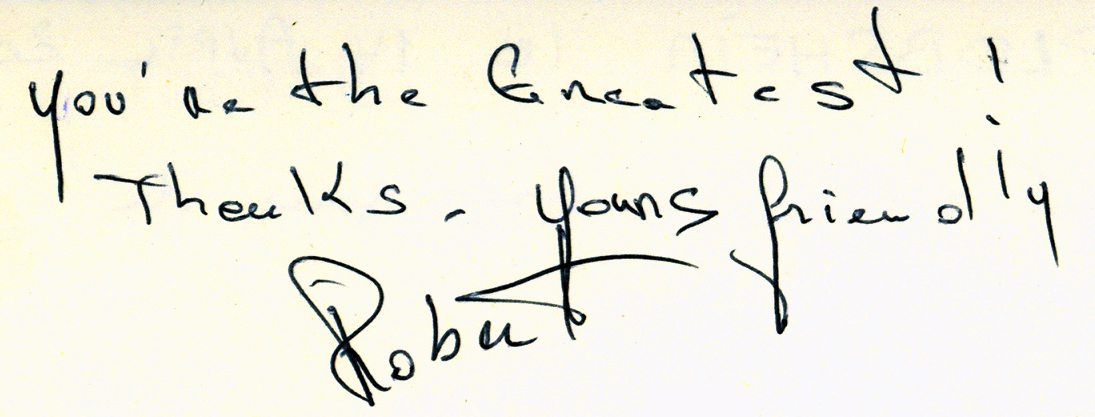 You're the Greatest!
Thanks. Yours friendly
Robert